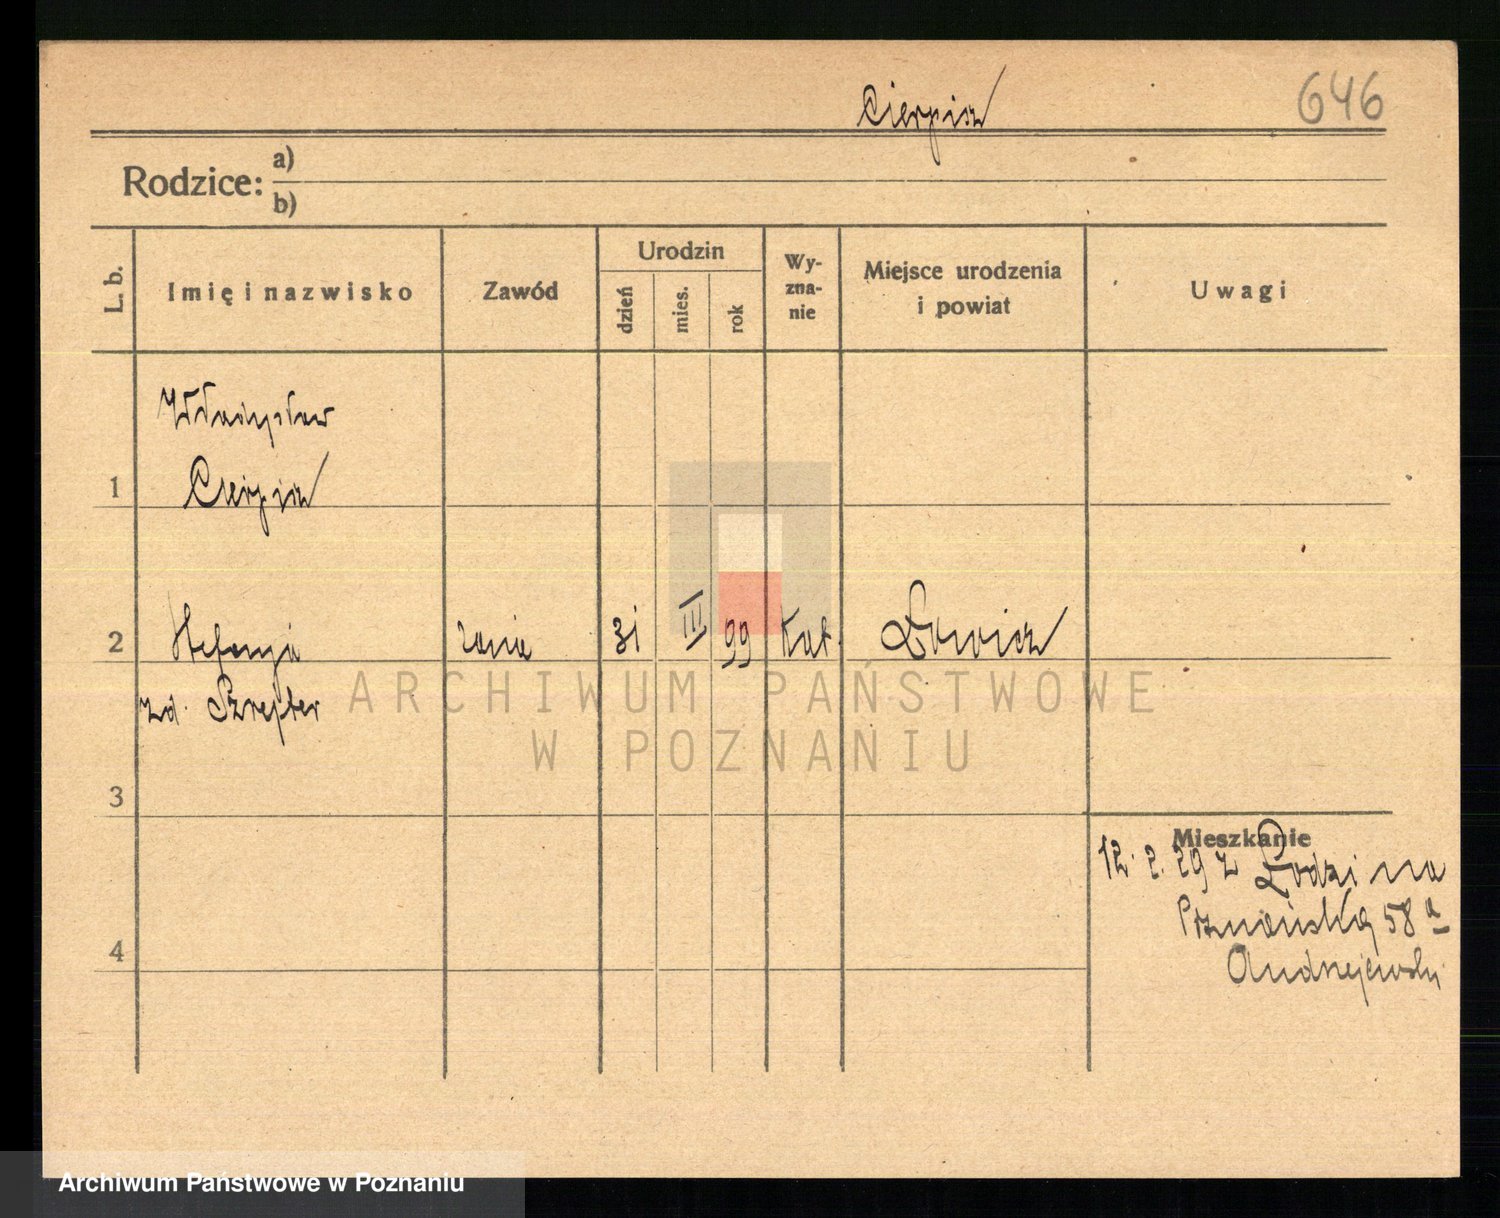 Cierpisz
646
Rodzice: a)
b)
L. b.
Imię i nazwisko
Zawód
Urodzin
dzień
mies.
rok
Wy-
zna-
nie
Miejsce urodzenia
i powiat
Uwagi
Władysław
1 Cierpisz
2 Stefanja żona 31 III 99 Kat. Łowicz
zd. Szrejter
ARCHIWUM PAŃSTWOWE
W POZNANIU
3
Mieszkanie
12. 2. 29 z Łodzi na
Poznańską 58 a
4
Archiwum Państwowe w Poznaniu